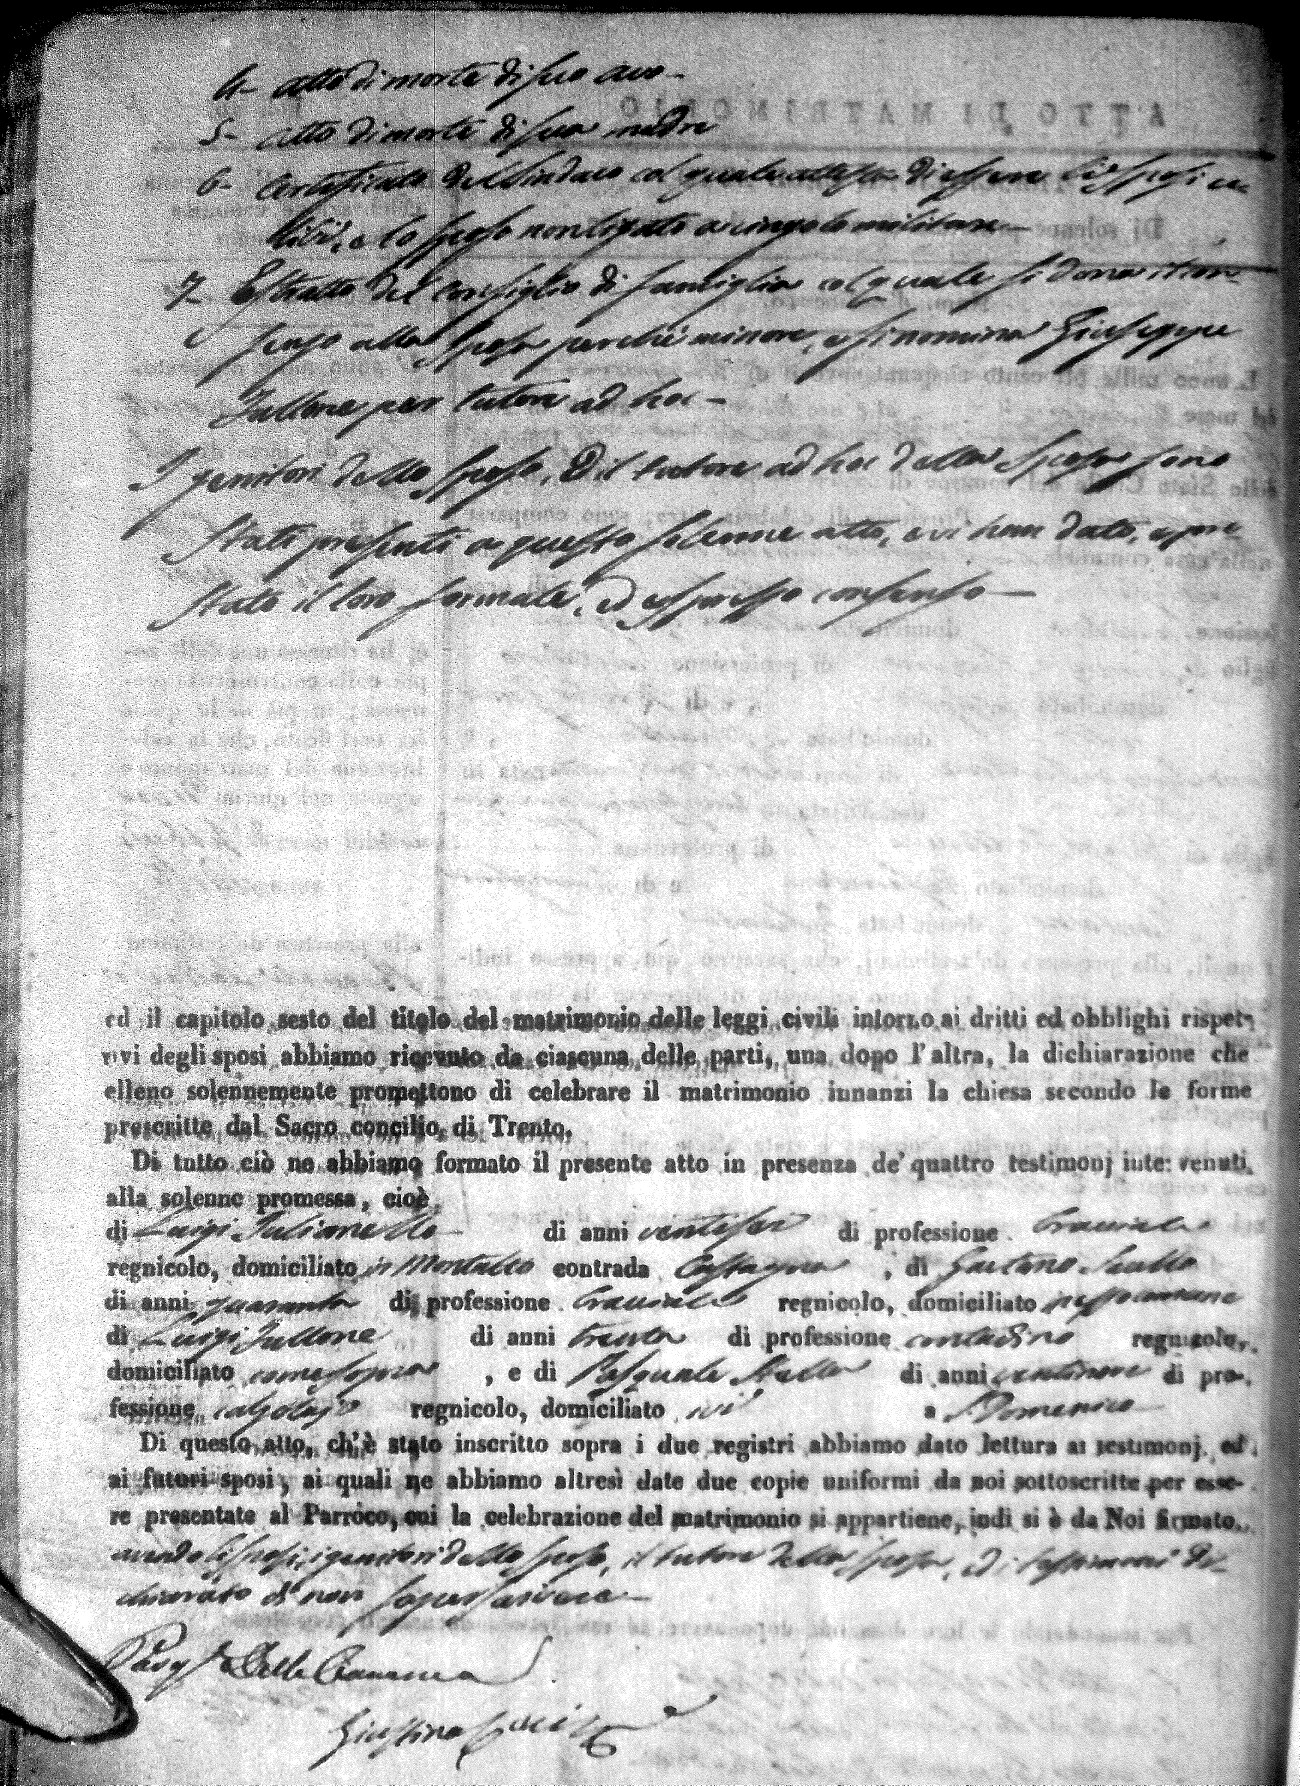 4- atto di morte di suo avo-
5- atto di morte di sua madre
6- Certificato del Sindaco col quale attesta di essere li sposi ce
libi, e lo sposo non legato a cingolo militare-
7- Estratto del Consiglio di famiglia col quale si dona il con-
senso alla Sposa perchè minore, e si nomina Giuseppe
Tallone per tutore ad hoc-
I genitori dello Sposo, Ed il tutore ad hoc della Sposa sono
Stati presenti a questo solenne atto, e vi han dato, e pre
stato il loro formale, ed espresso consenso-
ed il capitolo sesto del titolo del matrimonio delle leggi civili intorno ai dritti ed obblighi rispet-
tivi degli sposi abbiamo ricevuto da ciascuna delle parti, una dopo l'altra, la dichiarazione che
elleno solennemente promettono di celebrare il matrimonio innanzi la chiesa secondo le forme
prescritte dal Sacro concilio di Trento.
Di tutto ciò ne abbiamo formato il presente atto in presenza de' quattro testimonj intervenuti
alla solenne promessa, cioè
di Luigi di anni ventisei di professione Bracciale
regnicolo, domiciliato in Montalto contrada Castagna, di Gaetano
di anni quaranta di professione Bracciale regnicolo, domiciliato
di Luigi Tallone di anni trenta di professione contadino regnicolo,
domiciliato come sopra, e di Pasquale di anni ventinove di pro-
fessione calzolajo regnicolo, domiciliato ivi a S. Domenico
Di questo atto, ch'è stato inscritto sopra i due registri abbiamo dato lettura ai testimonj ed
ai futuri sposi, ai quali ne abbiamo altresì date due copie uniformi da noi sottoscritte per esse-
re presentate al Parroco, cui la celebrazione del matrimonio si appartiene, indi si è da Noi firmato,
avendo li sposi, i genitori dello sposo, il tutore della sposa, ed i testimoni di-
chiarato di non saper scrivere-
Giustino